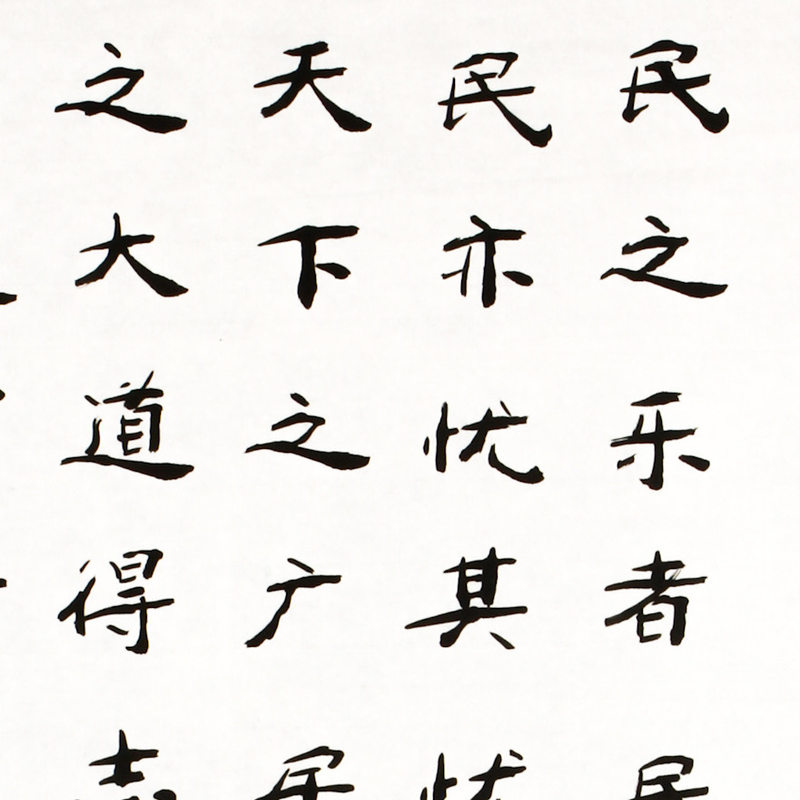 民之乐者民
民亦忧其忧
天下之广居
之大道得志